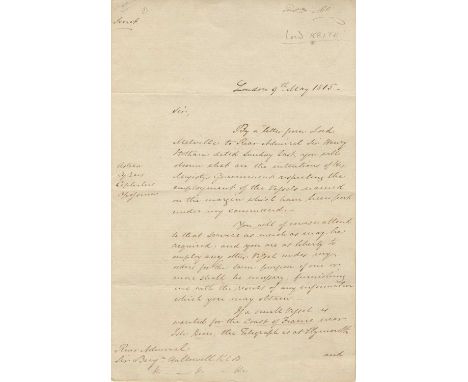 Secret
Lord Keith
London 9th May 1815.
Sir,
By a letter from Lord
Melville to Rear Admiral Sir Henry
Hotham dated Sunday last, you will
learn what are the intentions of His
Majesty's Government respecting the
employment of the Vessels named
in the margin which have been put
under my command.
You will of course attend
to that service as much as may be
required; and you are at liberty to
employ any other Vessel under my
orders for the same purpose if one or
more shall be necessary, furnishing
me with the result of any information
which you may obtain.
If a small Vessel is
wanted for the Coast of France near
the Telegraph is at Plymouth
and
Rear Admiral
Sir Benjn Hallowell K.C.B.